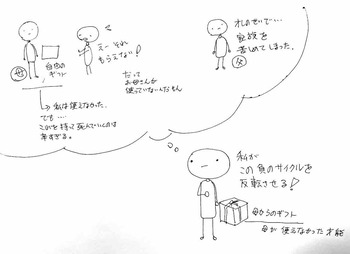 えー それ
もらえない!
だって
お母さんが
使っていないんだもん
母
自由の
ギフト
→ 私は使えなかった。
でも....
これを持って死んでいくのは
辛すぎる。
オレのせいで...
家族を
苦しめてしまった。
父
私が
この負のサイクルを
反転させる!
母からのギフト
母が使えなかった才能